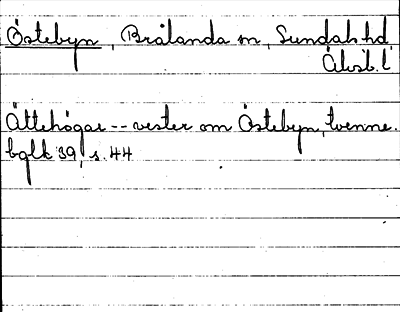 Östebyn, Brålanda sn, Sundals hd
Älvsb. l
Ättehögar -- vester om Östebyn, tvenne.
bglk 39, s. 44